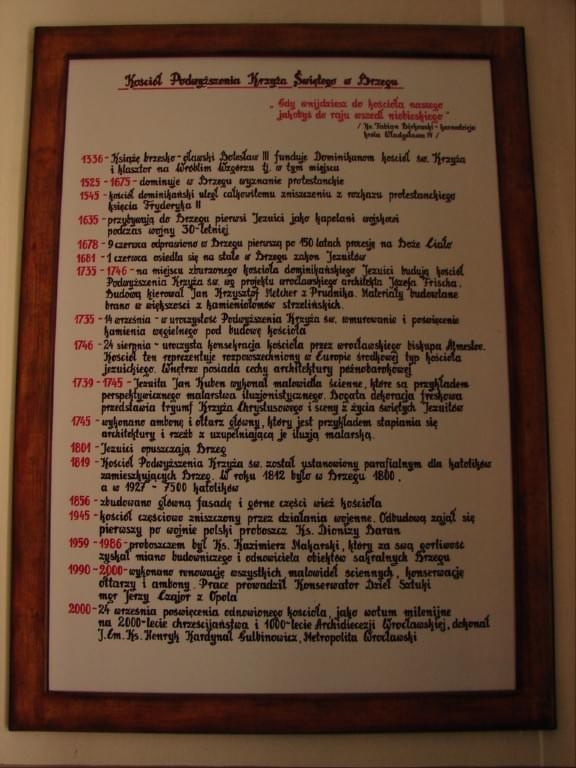 Kościół Podwyższenia Krzyża Świętego w Brzegu
„Gdy wnijdziesz do kościoła naszego
jakobyś do raju wszedł niebieskiego"
/ Ks. Fabian Birkowski - kaznodzieja
króla Władysława IV /
1336 - Książę brzesko - oławski Bolesław III funduje Dominikanom kościół św. Krzyża
i klasztor na Wróblim Wzgórzu tj. w tym miejscu
1525 - 1675 - dominuje w Brzegu wyznanie protestanckie
1545 - kościół dominikański uległ całkowitemu zniszczeniu z rozkazu protestanckiego
księcia Fryderyka II
1635 - przybywają do Brzegu pierwsi Jezuici jako kapelani wojskowi
podczas wojny 30-letniej
1678 - 9 czerwca odprawiono w Brzegu pierwszą po 150 latach procesję na Boże Ciało
1681 - 1 czerwca osiedla się na stałe w Brzegu zakon Jezuitów
1735 - 1746 - na miejscu zburzonego kościoła dominikańskiego Jezuici budują kościół
Podwyższenia Krzyża św. wg projektu wrocławskiego architekta Józefa Frischa.
Budową kierował Jan Krzysztof Melcher z Prudnika. Materiały budowlane
brano w większości z kamieniołomów strzelińskich.
1735 - 14 września - w uroczystość Podwyższenia Krzyża św. wmurowanie i poświęcenie
kamienia węgielnego pod budowę kościoła
1746 - 24 sierpnia - uroczysta konsekracja kościoła przez wrocławskiego biskupa Almesloe.
Kościół ten reprezentuje rozpowszechniony w Europie środkowej typ kościoła
jezuickiego. Wnętrze posiada cechy architektury późnobarokowej
1739 - 1745 - Jezuita Jan Kuben wykonał malowidła ścienne, które są przykładem
perspektywicznego malarstwa iluzjonistycznego. Bogata dekoracja freskowa
przedstawia tryumf Krzyża Chrystusowego i sceny z życia świętych Jezuitów
1745 - wykonano ambonę i ołtarz główny, który jest przykładem stapiania się
architektury i rzeźb z uzupełniającą je iluzją malarską.
1801 - Jezuici opuszczają Brzeg
1819 - Kościół Podwyższenia Krzyża św. został ustanowiony parafialnym dla katolików
zamieszkujących Brzeg. W roku 1812 było w Brzegu 1800,
a w 1927 ~ 7500 katolików
1856 - zbudowano główną fasadę i górne części wież kościoła
1945 - kościół częściowo zniszczony przez działania wojenne. Odbudową zajął się
pierwszy po wojnie polski proboszcz Ks. Dionizy Baran
1959 - 1986 - proboszczem był Ks. Kazimierz Makarski, który za swą gorliwość
zyskał miano budowniczego i odnowiciela obiektów sakralnych Brzegu
1990 - 2000 - wykonano renowację wszystkich malowideł ściennych, konserwację
ołtarzy i ambony. Prace prowadził Konserwator Dzieł Sztuki
mgr Jerzy Czajor z Opola
2000 - 24 września poświęcenia odnowionego kościoła, jako wotum milenijne
na 2000-lecie chrześcijaństwa i 1000-lecie Archidiecezji Wrocławskiej, dokonał
J.Em. Ks. Henryk Kardynał Gulbinowicz, Metropolita Wrocławski